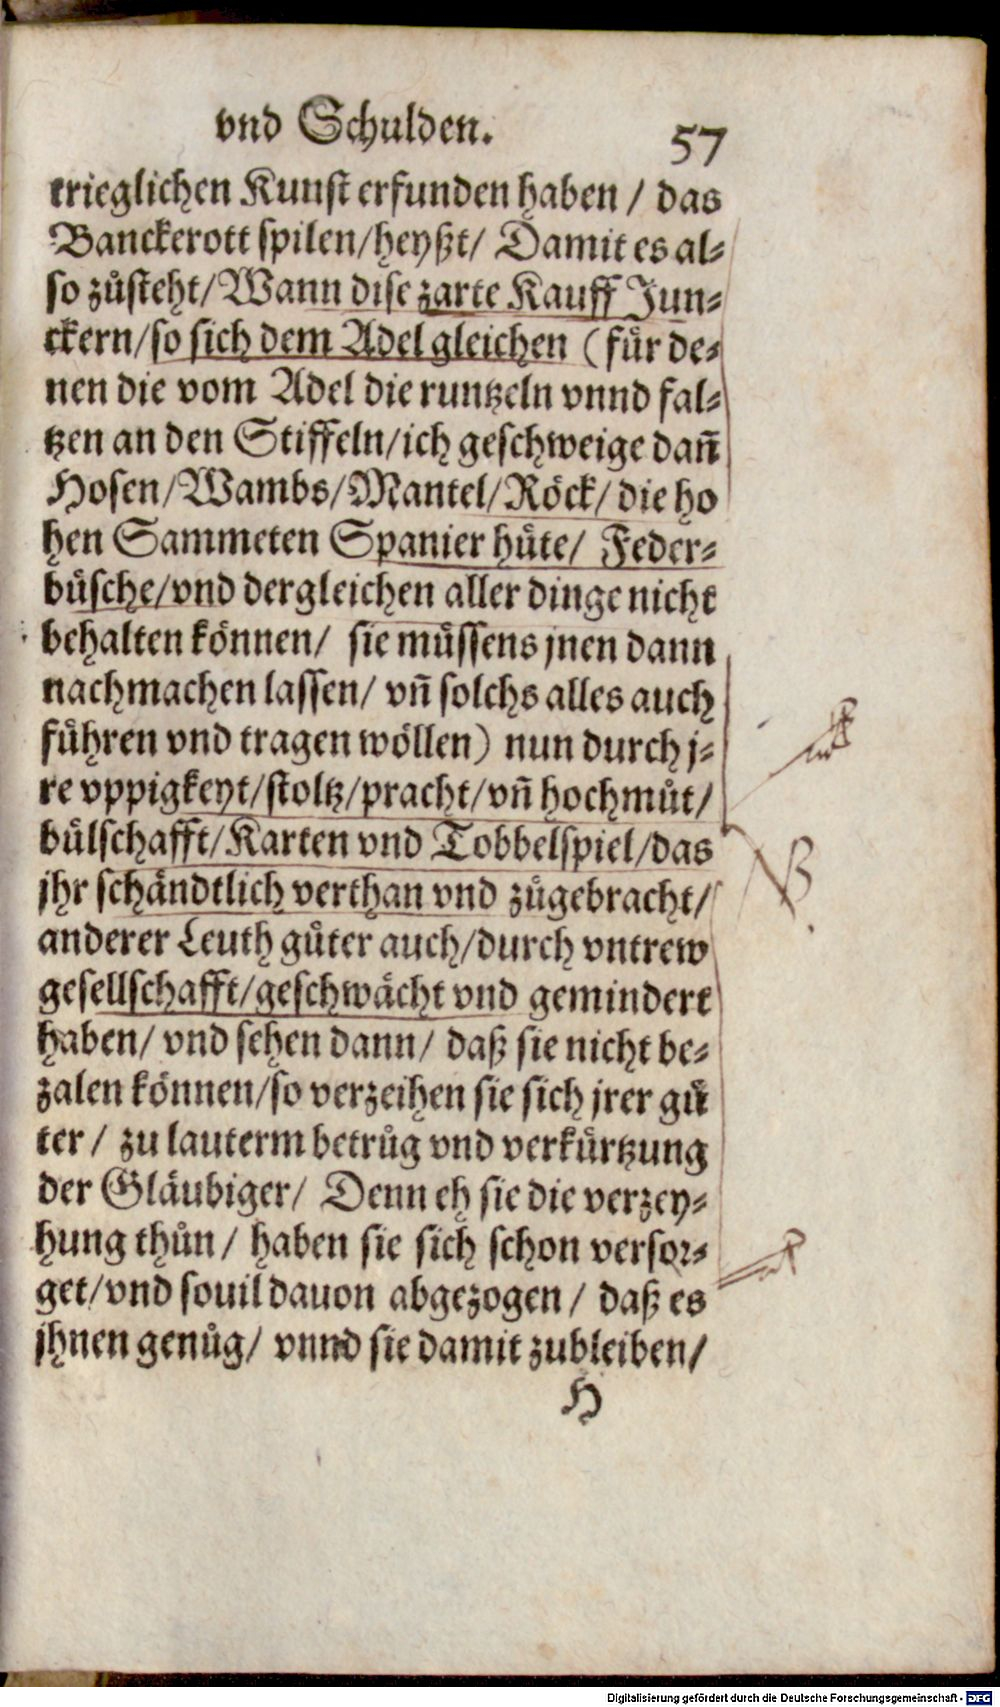 vnd Schulden. 57
trieglichen Kunst erfunden haben / das
Banckerott spilen/heyßt/ Damit es al⸗
so zůsteht/Wann dise zarte Kauff Jun⸗
ckern/so sich dem Adel gleichen (fůr de⸗
nen die vom Adel die runtzeln vnnd fal⸗
tzen an den Stiffeln/ich geschweige dañ
Hosen/Wambs/Mantel/Röck/die ho
hen Sammeten Spanier hüte/ Feder⸗
büsche/vnd dergleichen aller dinge nicht
behalten können/ sie müssens jnen dann
nachmachen lassen/ vñ solchs alles auch
führen vnd tragen wöllen) nun durch j⸗
re vppigkeyt/stoltz/pracht/vñ hochmůt/
bůlschafft/Karten vnd Tobbelspiel/das
jhr schändtlich verthan vnd zůgebracht/
anderer Leuth gůter auch/durch vntrew
gesellschafft/geschwächt vnd gemindert
haben/ vnd sehen dann/ daß sie nicht be⸗
zalen können/so verzeihen sie sich jrer gü
ter / zu lauterm betrůg vnd verkürtzung
der Gläubiger/ Denn eh sie die verzey⸗
hung thůn / haben sie sich schon versor⸗
get/vnd souil dauon abgezogen / daß es
jhnen genůg/ vnnd sie damit zubleiben/
H
NB.
Digitalisierung gefördert durch die Deutsche Forschungsgemeinschaft - DFG